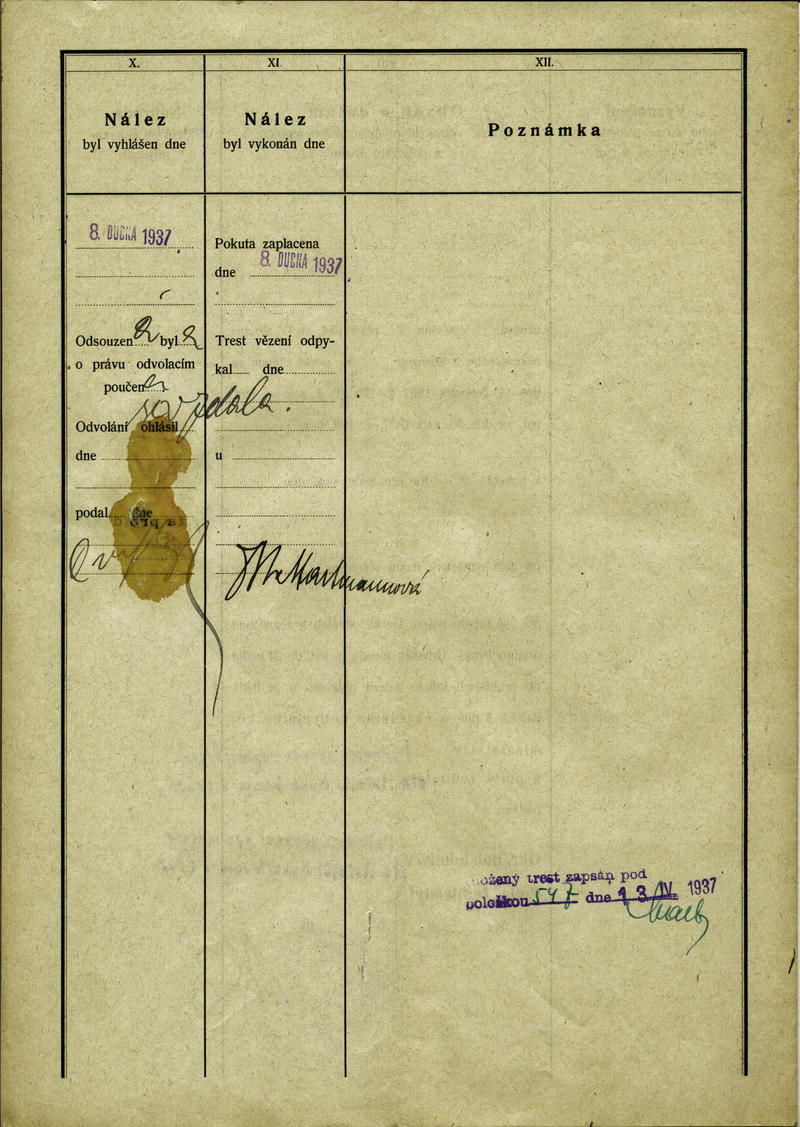 X.
Nález
byl vyhlášen dne
8. DUBNA 1937
Odsouzena byla
o právu odvolacím
poučena
se vzdala.
Odvolání ohlásil
dne
podal dne
XI.
Nález
byl vykonán dne
Pokuta zaplacena
8. DUBNA 1937
dne
Trest vězení odpy-
kal dne
u
Hartmannová
XII.
Poznámka
ožený trest zapsán pod
položkou 547 dne 13 IV. 1937